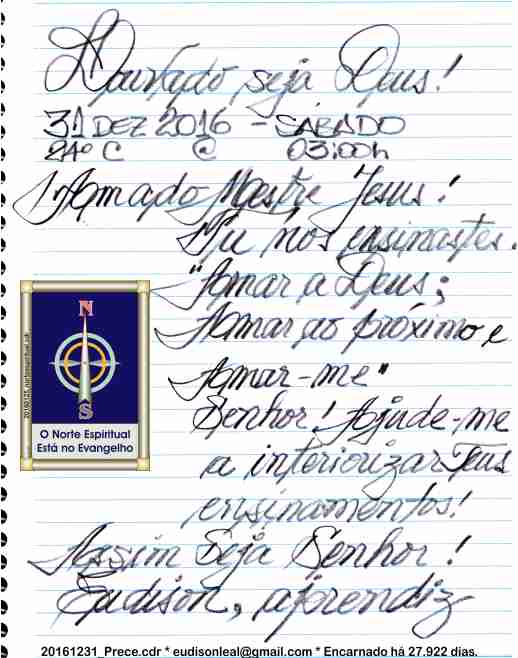 Louvado seja Deus!
31 DEZ 2016 - SÁBADO
24º C @ 03:00h
Amado Mestre Jesus!
Tu nos ensinastes.
"Amar a Deus;
Amar ao próximo e
Amar-me"
Senhor! Ajude-me
a interiorizar Teus
ensinamentos!
Assim Seja Senhor!
Eudison, aprendiz
N
S
O Norte Espiritual
Está no Evangelho
20161231_Prece.cdr * eudisonleal@gmail.com * Encarnado há 27.922 dias.